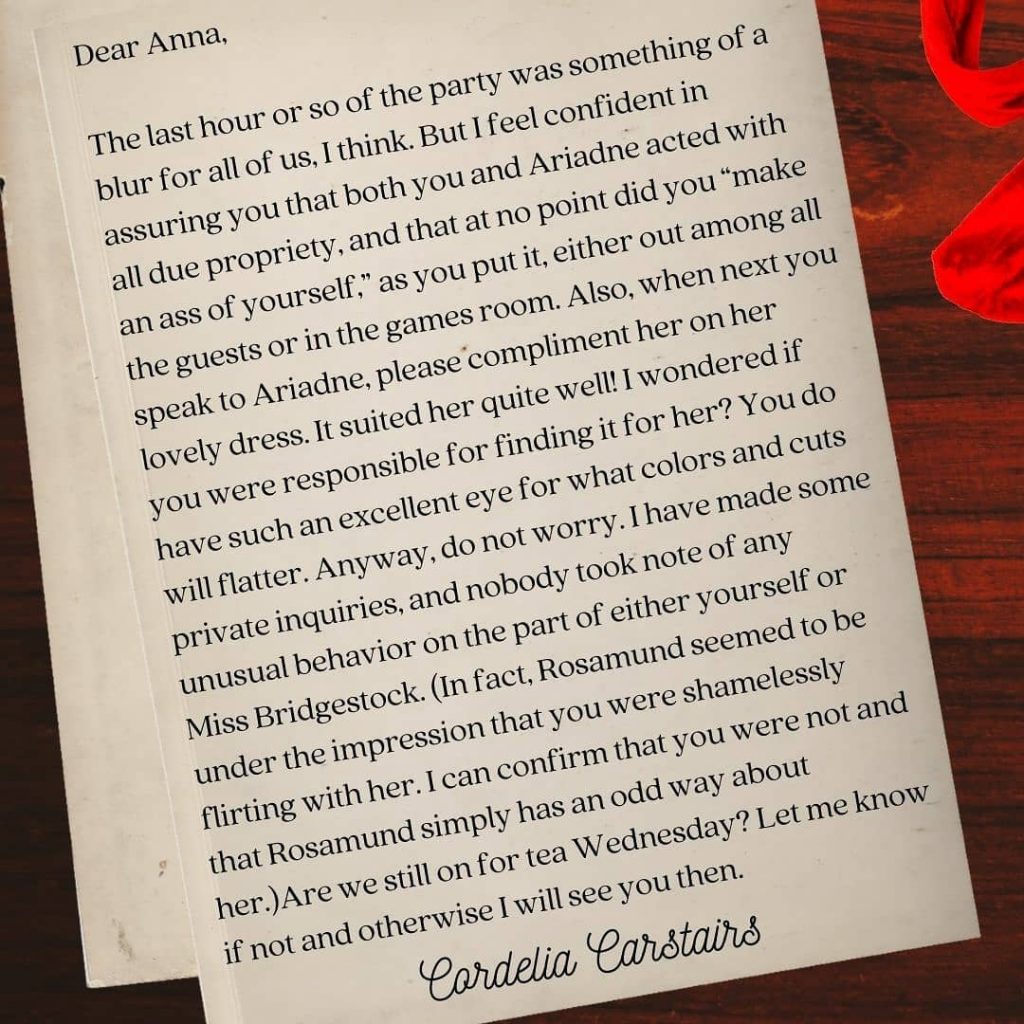 Dear Anna,
The last hour or so of the party was something of a
blur for all of us, I think. But I feel confident in
assuring you that both you and Ariadne acted with
all due propriety, and that at no point did you “make
an ass of yourself,” as you put it, either out among all
the guests or in the games room. Also, when next you
speak to Ariadne, please compliment her on her
lovely dress. It suited her quite well! I wondered if
you were responsible for finding it for her? You do
have such an excellent eye for what colors and cuts
will flatter. Anyway, do not worry. I have made some
private inquiries, and nobody took note of any
unusual behavior on the part of either yourself or
Miss Bridgestock. (In fact, Rosamund seemed to be
under the impression that you were shamelessly
flirting with her. I can confirm that you were not and
that Rosamund simply has an odd way about
her.)Are we still on for tea Wednesday? Let me know
if not and otherwise I will see you then.
Cordelia Carstairs